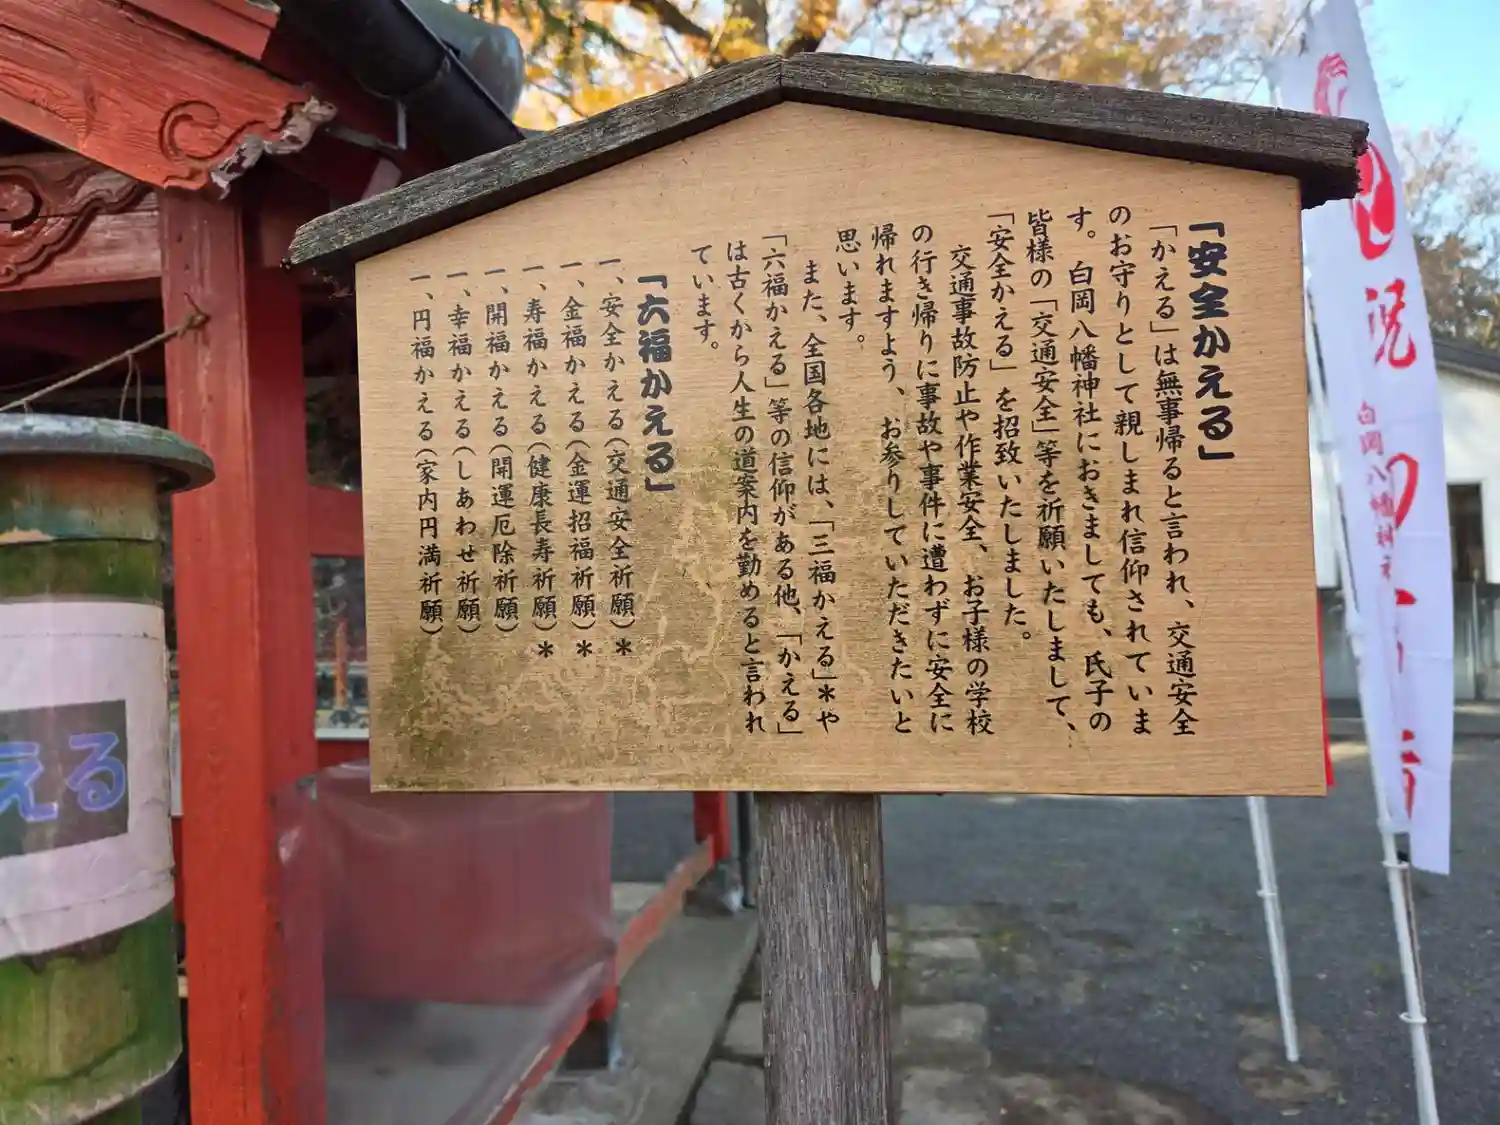 「安全かえる」
「かえる」は無事帰ると言われ、交通安全
のお守りとして親しまれ信仰されていま
す。白岡八幡神社におきましても、氏子の
皆様の「交通安全」等を祈願いたしまして、
「安全かえる」を招致いたしました。
交通事故防止や作業安全、お子様の学校
の行き帰りに事故や事件に遭わずに安全に
帰れますよう、お参りしていただきたいと
思います。
また、全国各地には、「三福かえる」＊や
「六福かえる」等の信仰がある他、「かえる」
は古くから人生の道案内を勤めると言われ
ています。
「六福かえる」
一、安全かえる(交通安全祈願)＊
一、金福かえる(金運招福祈願)＊
一、寿福かえる(健康長寿祈願)＊
一、開福かえる(開運厄除祈願)
一、幸福かえる(しあわせ祈願)
一、円福かえる(家内円満祈願)
える
白岡八幡神社